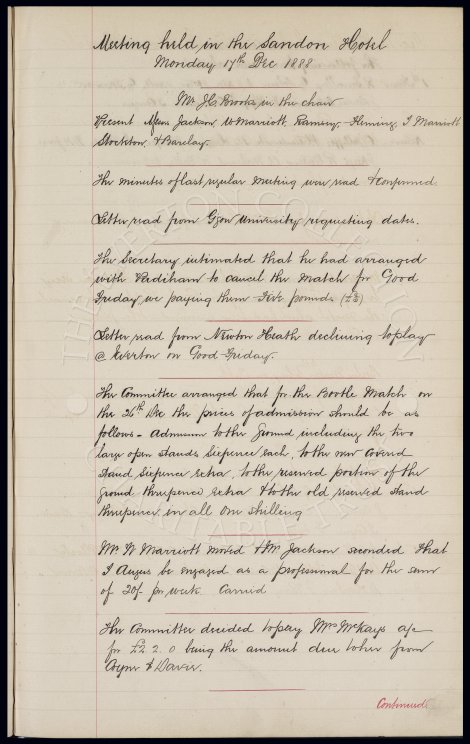 Meeting held in the Sandon Hotel
Monday 17th Dec 1888
Mr J C Brooks in the chair
Present Messrs Jackson, W Marriott, Ramsey, Fleming, T Marriott
Stockton & Barclay.
The minutes of last regular meeting were read & confirmed.
Letter read from University requesting dates.
The Secretary intimated that he had arranged
with Padiham to cancel the match for Good
Friday, we paying them Five pounds (£5)
Letter read from Newton Heath declining to play
@ Everton on Good Friday.
The Committee arranged that for the Bootle Match on
the 26th Dec the prices of admission should be as
follows - Admission to the Ground including the two
large open stands Sixpence each, to the new covered
Stand Sixpence extra, to the reserved portion of the
ground threepence extra & to the old reserved stand
threepence, in all One Shilling
Mr W Marriott moved & Mr Jackson seconded that
J Angus be engaged as a professional for the sum
of 20/- per week Carried
The Committee decided to pay Mrs McKays a/c
for £2. 2. 0 being the amount due to her from
& Davies.
Continued
THE EVERTON COLLECTION
CHARITABLE TRUST